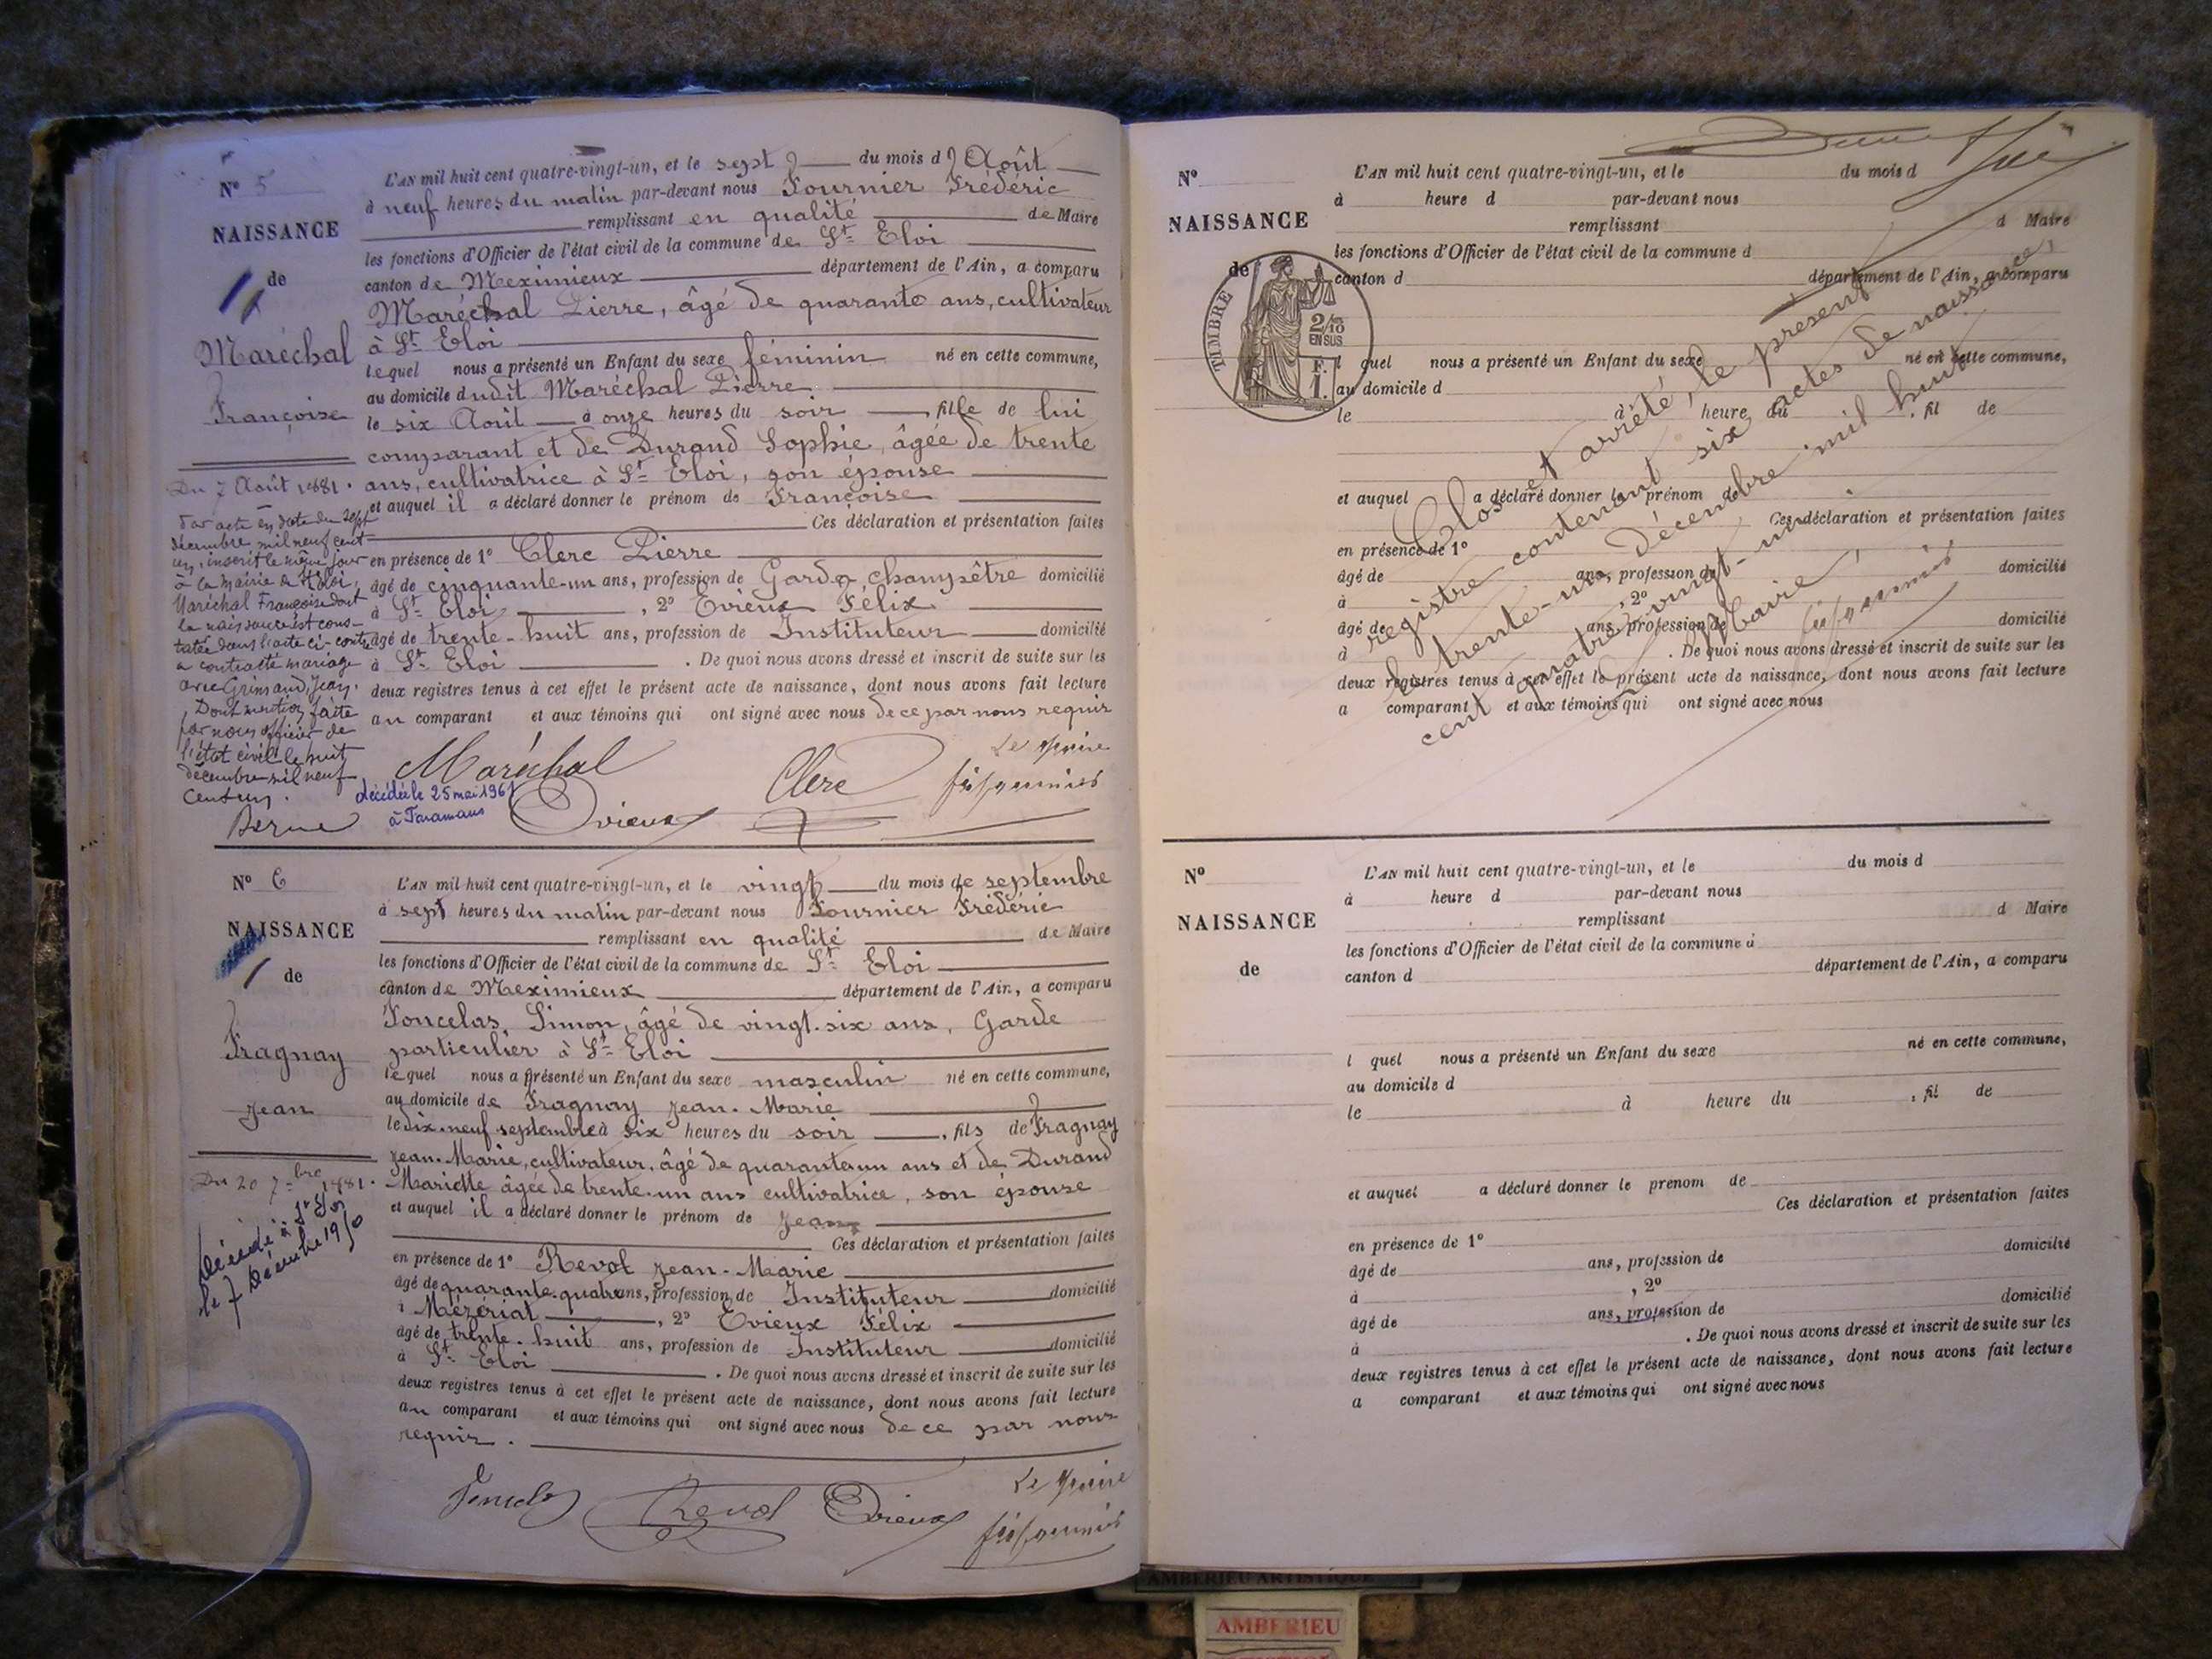 N° 5
NAISSANCE
de
Maréchal
Françoise
Du 7 Août 1881.
Par acte en date du sept
décembre mil neuf cent
un, inscrit le même jour
à la mairie de St Eloi,
Maréchal Françoise dont
la naissance est cons-
tatée dans l'acte ci-contre
a contracté mariage
avec Grimand, Jean.
Dont mention faite
par nous officier de
l'état civil le huit
décembre mil neuf
cent un.
L'AN mil huit cent quatre-vingt-un, et le sept du mois d'Août
à neuf heures du matin par-devant nous Fournier Frédéric
remplissant en qualité de Maire
les fonctions d'Officier de l'état civil de la commune de St Eloi
canton de Meximieux département de l'Ain, a comparu
Maréchal Pierre, âgé de quarante ans, cultivateur
à St Eloi
lequel nous a présenté un Enfant du sexe féminin né en cette commune,
au domicile dudit Maréchal Pierre
le six Août à onze heures du soir, fille de lui
comparant et de Durand Sophie, âgée de trente
ans, cultivatrice à St Eloi, son épouse
et auquel il a déclaré donner le prénom de Françoise
Ces déclaration et présentation faites
en présence de 1° Clerc Pierre
âgé de cinquante-un ans, profession de Garde champêtre domicilié
à St Eloi, 2° Evieux Félix
âgé de trente-huit ans, profession de Instituteur domicilié
à St Eloi. De quoi nous avons dressé et inscrit de suite sur les
deux registres tenus à cet effet le présent acte de naissance, dont nous avons fait lecture
au comparant et aux témoins qui ont signé avec nous de ce par nous requis
Le Maire
Maréchal Clerc
décédée le 25 mai 1961
à Faramans
Evieux
N° 6
NAISSANCE
de
Fragnay
Jean
Du 20 7bre 1881.
Décédé à St Eloi
le 7 Décembre 1950
L'AN mil huit cent quatre-vingt-un, et le vingt du mois de septembre
à sept heures du matin par-devant nous Fournier Frédéric
remplissant en qualité de Maire
les fonctions d'Officier de l'état civil de la commune de St Eloi
canton de Meximieux département de l'Ain, a comparu
Foncelas, Simon, âgé de vingt-six ans, Garde
particulier à St Eloi
lequel nous a présenté un Enfant du sexe masculin né en cette commune,
au domicile de Fragnay Jean-Marie
le dix-neuf septembre à six heures du soir, fils de Fragnay
Jean-Marie, cultivateur, âgé de quarante un ans et de Durand
Mariette âgée de trente-un ans cultivatrice, son épouse
et auquel il a déclaré donner le prénom de Jean
Ces déclaration et présentation faites
en présence de 1° Revol Jean-Marie
âgé de quarante-quatre ans, profession de Instituteur domicilié
à Mézériat, 2° Evieux Félix
âgé de trente-huit ans, profession de Instituteur domicilié
à St Eloi. De quoi nous avons dressé et inscrit de suite sur les
deux registres tenus à cet effet le présent acte de naissance, dont nous avons fait lecture
au comparant et aux témoins qui ont signé avec nous de ce par nous
requis.
Le Maire
Revol Evieux
N°
NAISSANCE
de
TIMBRE
2/10
EN SUS
F.
1.
L'AN mil huit cent quatre-vingt-un, et le du mois d
à heure d par-devant nous
remplissant d Maire
les fonctions d'Officier de l'état civil de la commune d
canton d département de l'Ain, a comparu
l quel nous a présenté un Enfant du sexe né en cette commune,
au domicile d
le à heure du , fil de
et auquel a déclaré donner le prénom de
Ces déclaration et présentation faites
en présence de 1°
âgé de ans, profession de domicilié
à , 2°
âgé de ans, profession de domicilié
à . De quoi nous avons dressé et inscrit de suite sur les
deux registres tenus à cet effet le présent acte de naissance, dont nous avons fait lecture
a comparant et aux témoins qui ont signé avec nous
Clos et arrêté, le présent
registre contenant six actes de naissance,
le trente-un Décembre mil huit
cent quatre-vingt-un.
Le Maire,
N°
NAISSANCE
de
L'AN mil huit cent quatre-vingt-un, et le du mois d
à heure d par-devant nous
remplissant d Maire
les fonctions d'Officier de l'état civil de la commune d
canton d département de l'Ain, a comparu
l quel nous a présenté un Enfant du sexe né en cette commune,
au domicile d
le à heure du , fil de
et auquel a déclaré donner le prenom de
Ces déclaration et présentation faites
en présence de 1°
âgé de ans, profession de domicilié
à , 2°
âgé de ans, profession de domicilié
à . De quoi nous avons dressé et inscrit de suite sur les
deux registres tenus à cet effet le présent acte de naissance, dont nous avons fait lecture
a comparant et aux témoins qui ont signé avec nous
AMBERIEU ARTISTIQUE
AMBERIEU